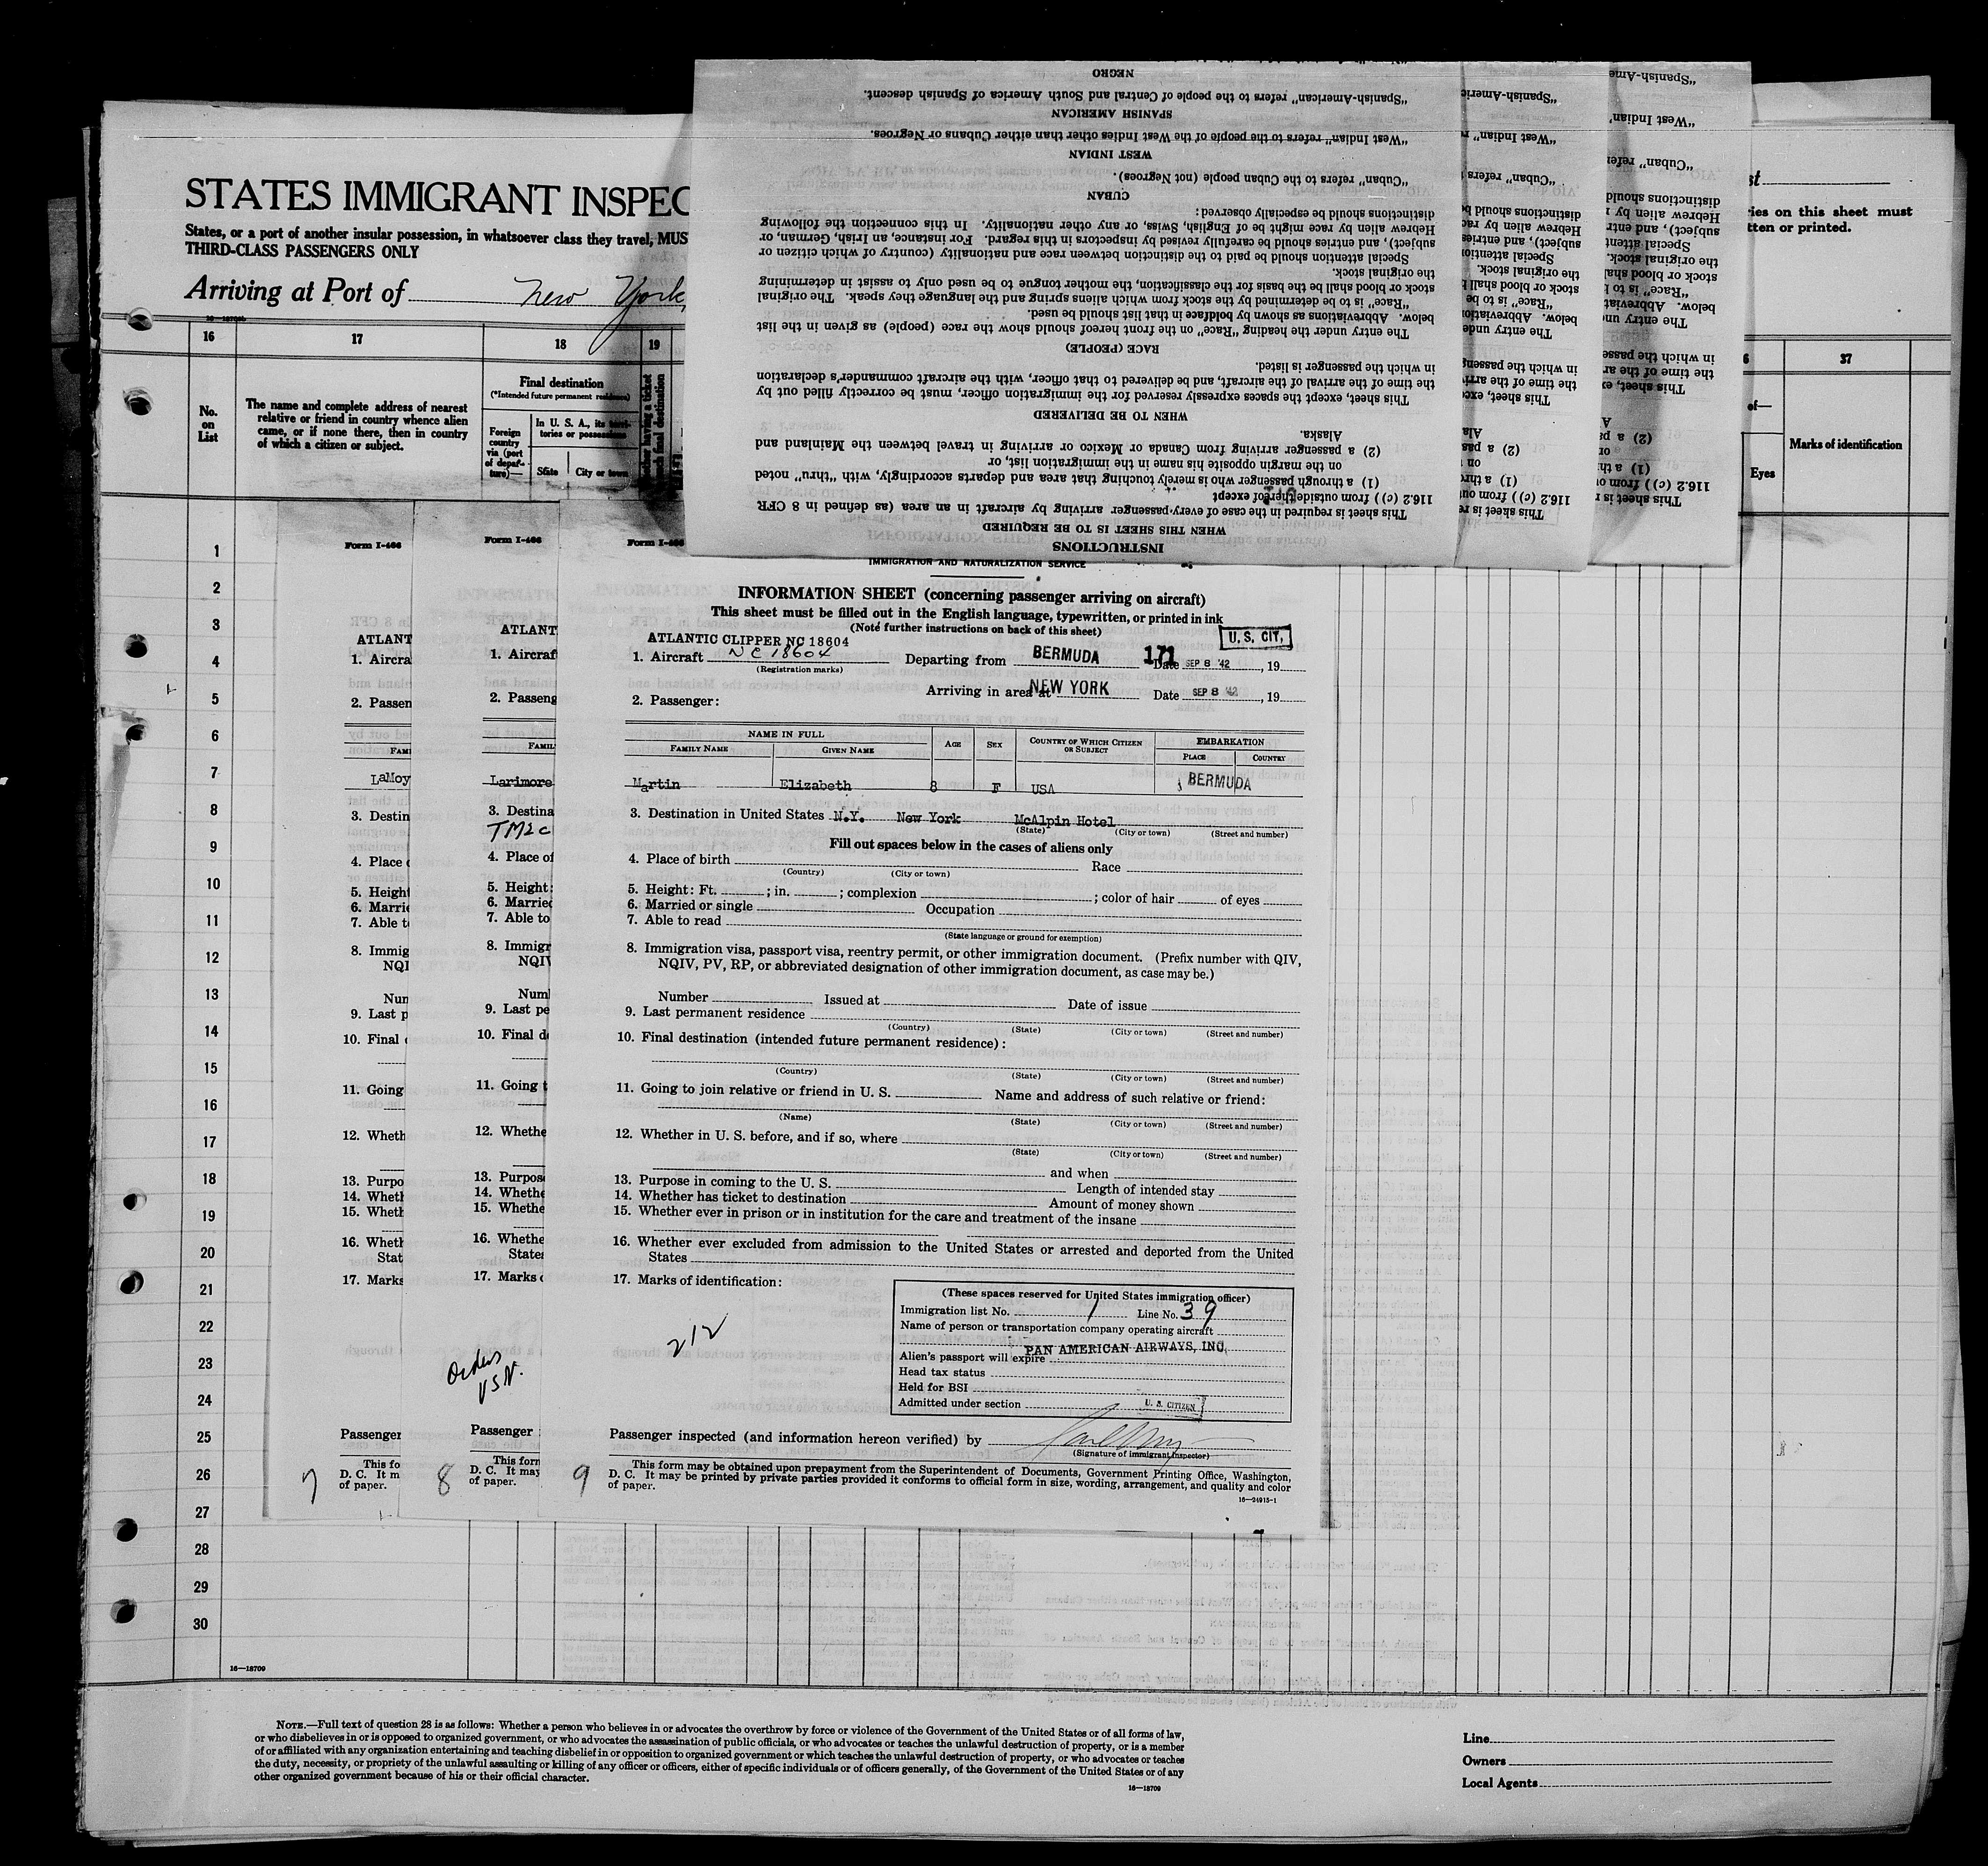 STATES IMMIGRANT INSPEC
States, or a port of another insular possession, in whatsoever class they travel, MUS
THIRD-CLASS PASSENGERS ONLY
Arriving at Port of New York,
16 17 18 19
No. on List
The name and complete address of nearest
relative or friend in country whence alien
came, or if none there, then in country
of which a citizen or subject.
Final destination
(*Intended future permanent residence)
Foreign country via (port of departure)—
In U. S. A., its territories or possessions
State City or town
st
ries on this sheet must
tten or printed.
37
of—
Eyes
Marks of identification
INSTRUCTIONS
WHEN THIS SHEET IS TO BE REQUIRED
This sheet is required in the case of every passenger arriving by aircraft in an area (as defined in 8 CFR
116.2 (c) ) from outside thereof except
(1) a through passenger who is merely touching that area and departs accordingly, with "thru" noted
on the margin opposite his name in the immigration list, or
(2) a passenger arriving from Canada or Mexico or arriving in travel between the Mainland and
Alaska.
WHEN TO BE DELIVERED
This sheet, except the spaces expressly reserved for the immigration officer, must be correctly filled out by
the time of the arrival of the aircraft, and be delivered to that officer, with the aircraft commander's declaration
in which the passenger is listed.
RACE (PEOPLE)
The entry under the heading "Race" on the front hereof should show the race (people) as given in the list
below. Abbreviations as shown by boldface in that list should be used.
"Race" is to be determined by the stock from which aliens spring and the language they speak. The original
stock or blood shall be the basis for the classification, the mother tongue to be used only to assist in determining
the original stock.
Special attention should be paid to the distinction between race and nationality (country of which citizen or
subject), and entries should be carefully revised by inspectors in this regard. For instance, an Irish, German, or
Hebrew alien by race might be of English, Swiss, or any other nationality. In this connection the following
distinctions should be especially observed:
CUBAN
"Cuban" refers to the Cuban people (not Negroes).
WEST INDIAN
"West Indian" refers to the people of the West Indies other than either Cubans or Negroes.
SPANISH AMERICAN
"Spanish-American" refers to the people of Central and South America of Spanish descent.
NEGRO
1
2
3
4
5
6
7
8
9
10
11
12
13
14
15
16
17
18
19
20
21
22
23
24
25
26
27
28
29
30
16—18709
Form I-466
ATLANT
1. Aircra
2. Passen
FAMI
LaMoy
3. Destin
4. Place
5. Height
6. Marri
7. Able t
8. Immig
NQI
Nun
9. Last p
10. Final
11. Going
12. Wheth
13. Purpo
14. Whet
15. Whet
16. Whet
Stat
17. Marks
Passenger
This fo
D. C. It m
of paper.
7
Form I-466
ATLANT
1. Aircraf
2. Passeng
FAMIL
Larimore
3. Destina
TM2c
4. Place of
5. Height:
6. Married
7. Able to
8. Immigr
NQIV
Numl
9. Last pe
10. Final d
11. Going t
12. Whethe
13. Purpose
14. Whethe
15. Whethe
16. Whethe
States
17. Marks
Orders
USN.
Passenger
This form
D. C. It may
of paper.
8
Form I-466
IMMIGRATION AND NATURALIZATION SERVICE
INFORMATION SHEET (concerning passenger arriving on aircraft)
This sheet must be filled out in the English language, typewritten, or printed in ink
(Note further instructions on back of this sheet)
U. S. CIT.
ATLANTIC CLIPPER NC 18604
1. Aircraft NC 18604 Departing from BERMUDA 171 Date SEP 8 '42, 19
(Registration marks)
Arriving in area at NEW YORK Date SEP 8 '42, 19
2. Passenger:
NAME IN FULL AGE SEX COUNTRY OF WHICH CITIZEN OR SUBJECT EMBARKATION
FAMILY NAME GIVEN NAME PLACE COUNTRY
Martin Elizabeth 8 F USA BERMUDA
3. Destination in United States N.Y. New York McAlpin Hotel
(State) (City or town) (Street and number)
Fill out spaces below in the cases of aliens only
4. Place of birth Race
(Country) (City or town)
5. Height: Ft. ; in. ; complexion ; color of hair of eyes
6. Married or single Occupation
7. Able to read
(State language or ground for exemption)
8. Immigration visa, passport visa, reentry permit, or other immigration document. (Prefix number with QIV,
NQIV, PV, RP, or abbreviated designation of other immigration document, as case may be.)
Number Issued at Date of issue
9. Last permanent residence
(Country) (State) (City or town) (Street and number)
10. Final destination (intended future permanent residence):
(Country) (State) (City or town) (Street and number)
11. Going to join relative or friend in U. S. Name and address of such relative or friend:
(Name) (State) (City or town) (Street and number)
12. Whether in U. S. before, and if so, where
(State) (City or town) (Street and number)
and when
13. Purpose in coming to the U. S. Length of intended stay
14. Whether has ticket to destination Amount of money shown
15. Whether ever in prison or in institution for the care and treatment of the insane
16. Whether ever excluded from admission to the United States or arrested and deported from the United
States
17. Marks of identification:
212
(These spaces reserved for United States immigration officer)
Immigration list No. 1 Line No. 39
Name of person or transportation company operating aircraft
PAN AMERICAN AIRWAYS, INC.
Alien's passport will expire
Head tax status
Held for BSI
Admitted under section U. S. CITIZEN
Passenger inspected (and information hereon verified) by
(Signature of immigrant inspector)
This form may be obtained upon prepayment from the Superintendent of Documents, Government Printing Office, Washington,
D. C. It may be printed by private parties provided it conforms to official form in size, wording, arrangement, and quality and color
of paper.
16—24915-1
9
NOTE.—Full text of question 28 is as follows: Whether a person who believes in or advocates the overthrow by force or violence of the Government of the United States or of all forms of law,
or who disbelieves in or is opposed to organized government, or who advocates the assassination of public officials, or who advocates or teaches the unlawful destruction of property, or is a member
of or affiliated with any organization entertaining and teaching disbelief in or opposition to organized government or which teaches the unlawful destruction of property, or who advocates or teaches
the duty, necessity, or propriety of the unlawful assaulting or killing of any officer or officers, either of specific individuals or of officers generally, of the Government of the United States or of any
other organized government because of his or their official character.
16—18709
Line
Owners
Local Agents